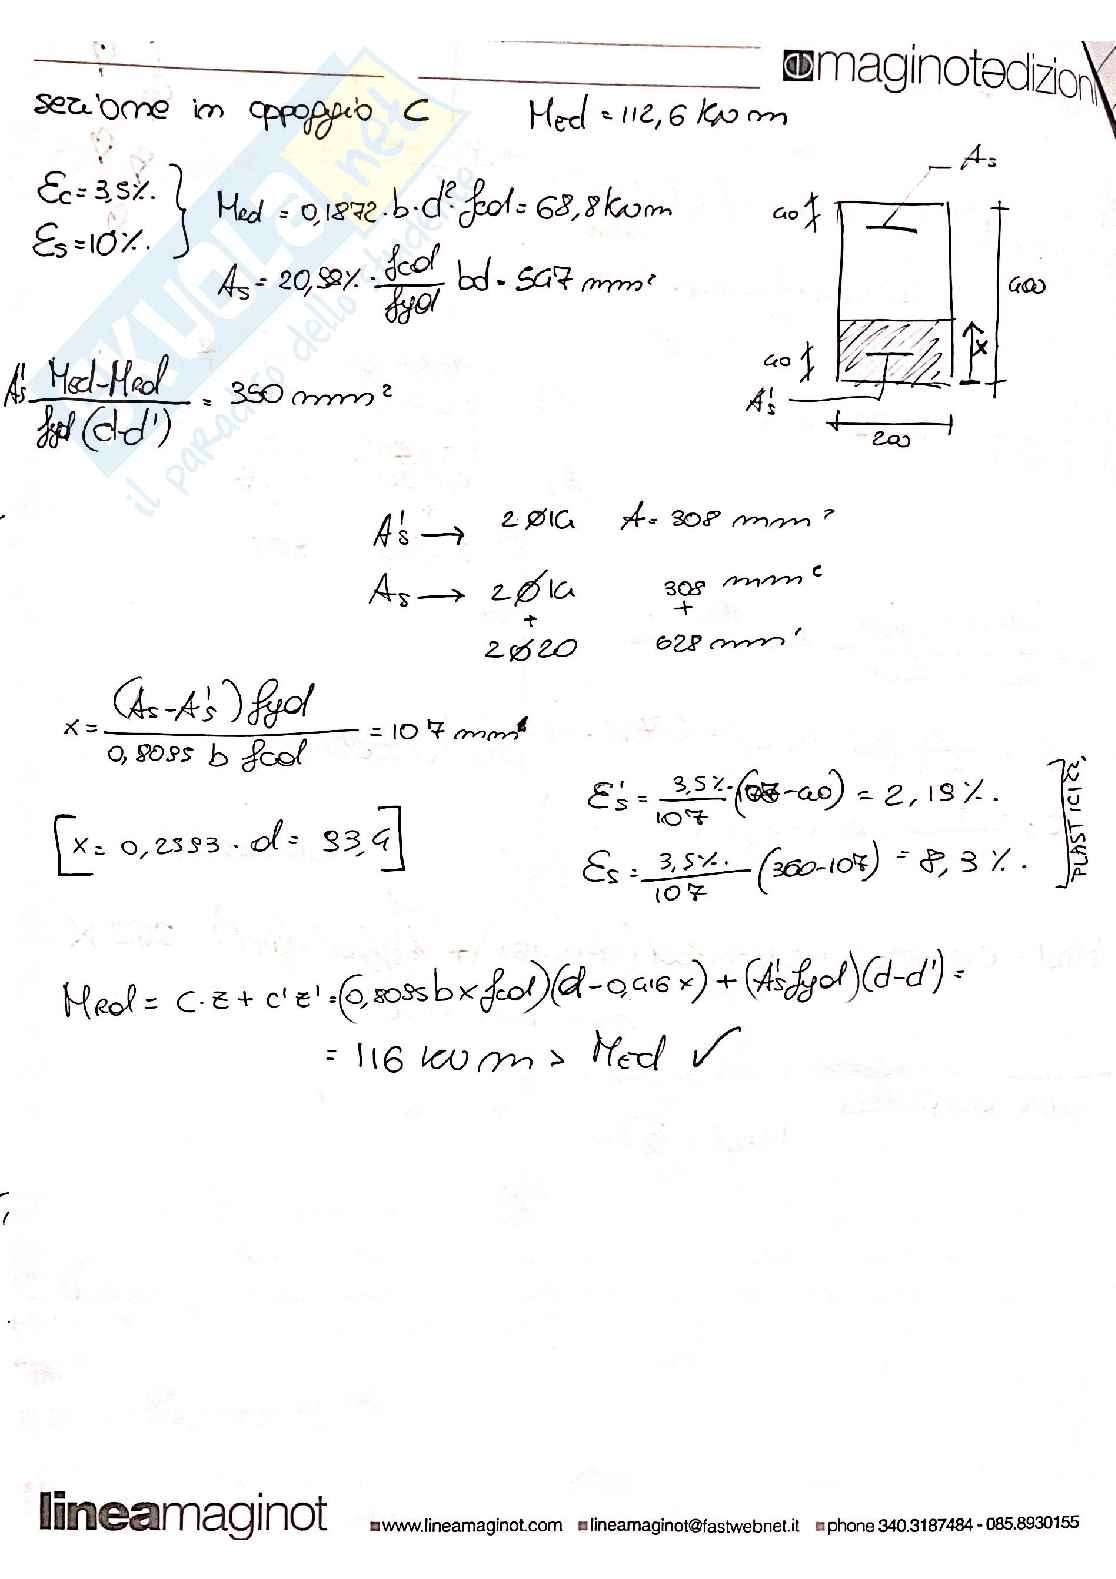 maginotedizioni
sezione in appoggio C    Med = 112,6 kNm
εc = 3,5‰
εs = 10‰
Med = 0,1872 · b · d² · fcd = 68,8 kNm
As = 20,98% · fcd/fyd bd = 547 mm²
A's Med - Mrd / fyd (d-d') = 350 mm²
As
40
400
x
40
A's
200
A's → 2Ø14    A = 308 mm²
As → 2Ø14    308 mm²
+    +
2Ø20    628 mm²
x = (As - A's) fyd / 0,8095 b fcd = 107 mm
[x = 0,2593 · d = 93,4]
ε's = 3,5‰/107 · (107-40) = 2,19‰
εs = 3,5‰/107 (360-107) = 8,3‰.
] PLASTICIZ.
MRd = C·z + C'z' = (0,8095 b x fcd)(d - 0,416 x) + (A's fyd)(d-d') =
= 116 kNm > Med ✓
SKUOLA.net
il paradiso dello studente
lineamaginot
www.lineamaginot.com lineamaginot@fastwebnet.it phone 340.3187484 - 085.8930155